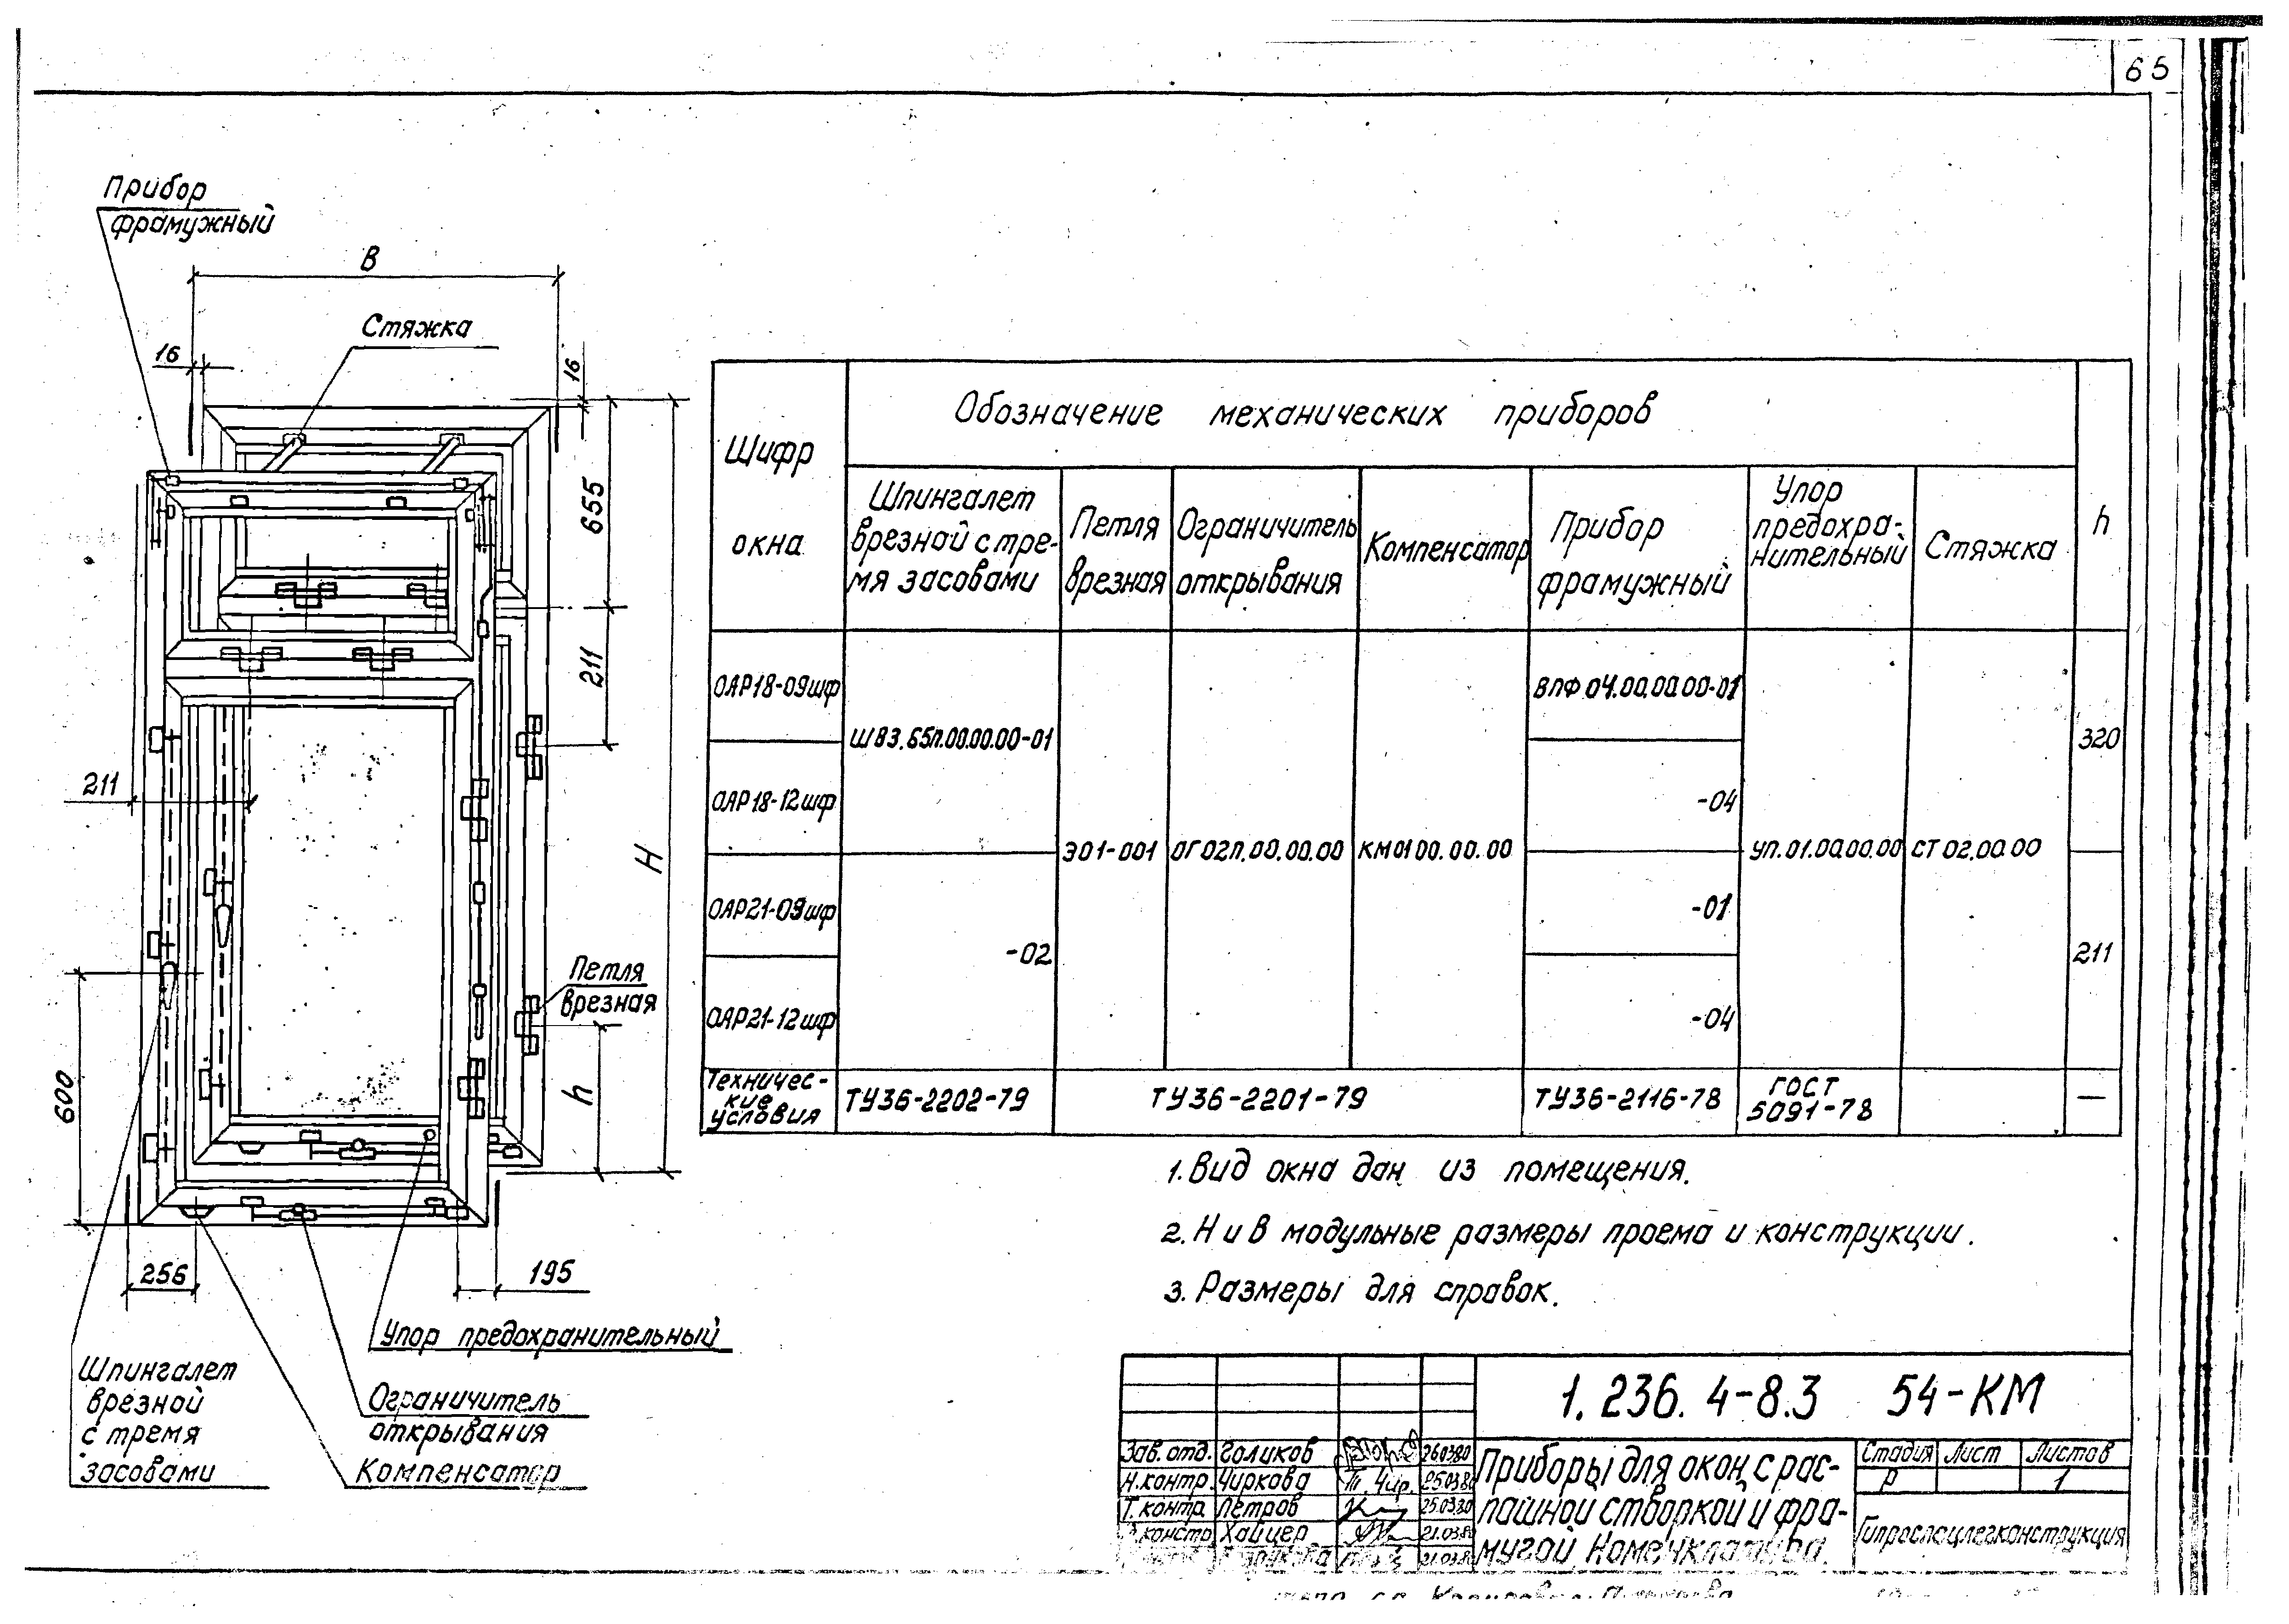 65
Прибор
фрамужный
В
Стяжка
16
16
655
211
211
Н
600
Петля
врезная
h
256
195
Упор предохранительный
Шпингалет
врезной
с тремя
засовами
Ограничитель
открывания
Компенсатор
Шифр
окна
Обозначение механических приборов
h
Шпингалет
врезной с тре-
мя засовами
Петля
врезная
Ограничитель
открывания
Компенсатор
Прибор
фрамужный
Упор
предохра-
нительный
Стяжка
ОАР18-09шф
ОАР18-12шф
ОАР21-09шф
ОАР21-12шф
ШВ3.65П.00.00.00-01
-02
Э01-001
ОГ02П.00.00.00
КМ01 00.00.00
ВПФ.04.00.00.00-01
-04
-01
-04
УП.01.00.00.00
СТ 02.00.00
320
211
Техничес-
кие
условия
ТУ36-2202-79
ТУ36-2201-79
ТУ36-2116-78
ГОСТ
5091-78
—
1. Вид окна дан из помещения.
2. Н и В модульные размеры проема и конструкции.
3. Размеры для справок.
1.236.4-8.3 54-КМ
Зав. отд. Голиков 26.03.80
Н.контр. Чиркова 25.03.80
Т.контр. Петров 25.03.80
констр Хайцер 21.03.80
21.03.8
Приборы для окон с рас-
пашной створкой и фра-
мугой. Номенклатура.
Стадия Лист Листов
Р 1
Гипроспецлегконструкция